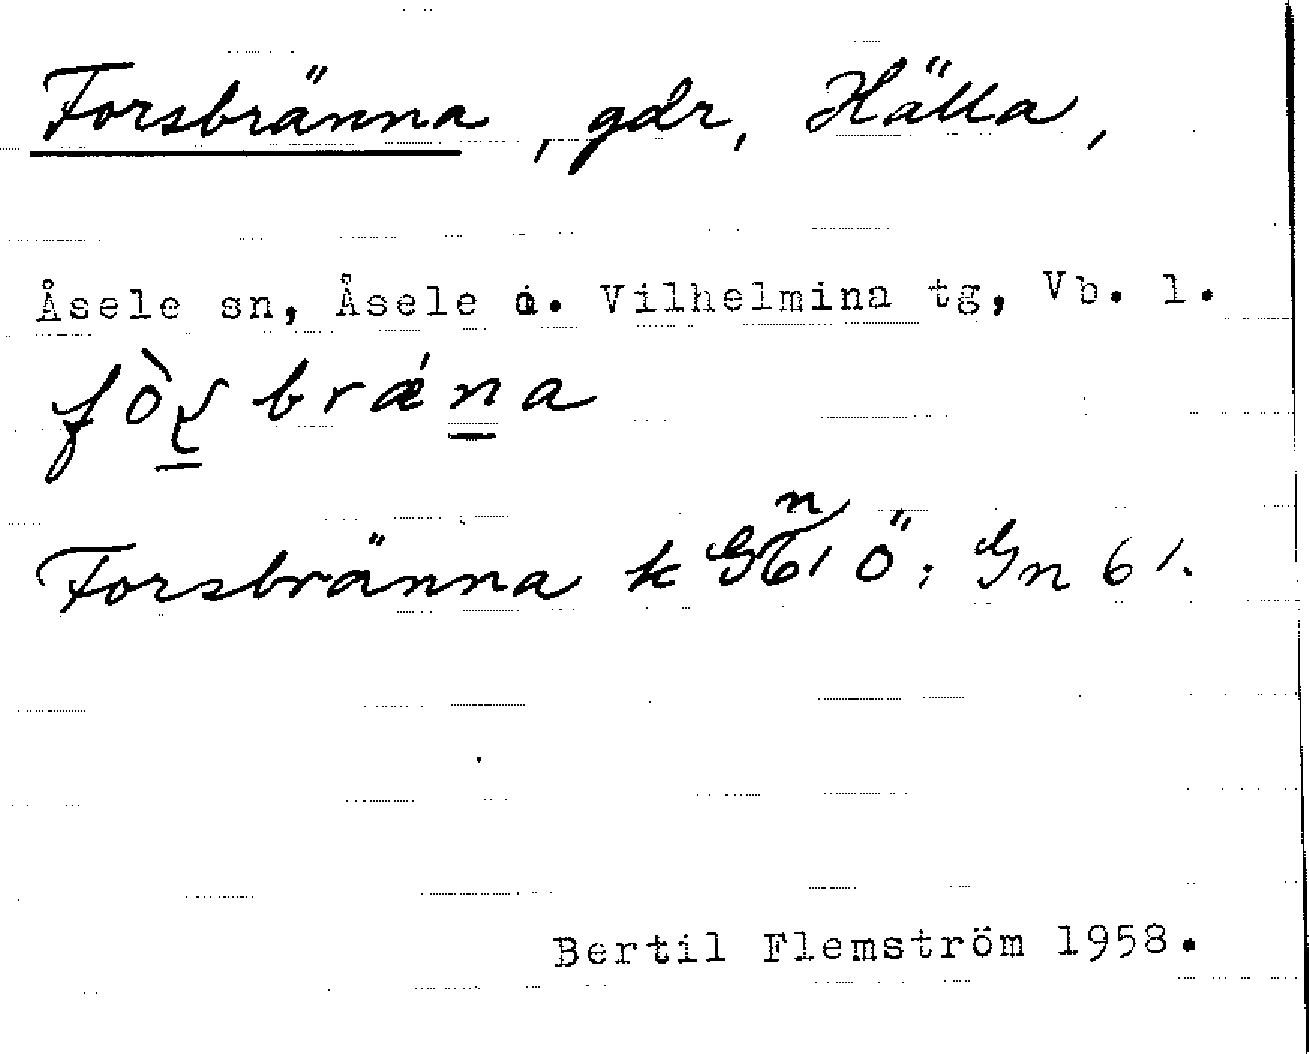 Forsbränna, gdr, Hälla,
Åsele sn, Åsele o. Vilhelmina tg, Vb. l.
Forsbränna k Gn61 Ö; Gn 61.
Bertil Flemström 1958.